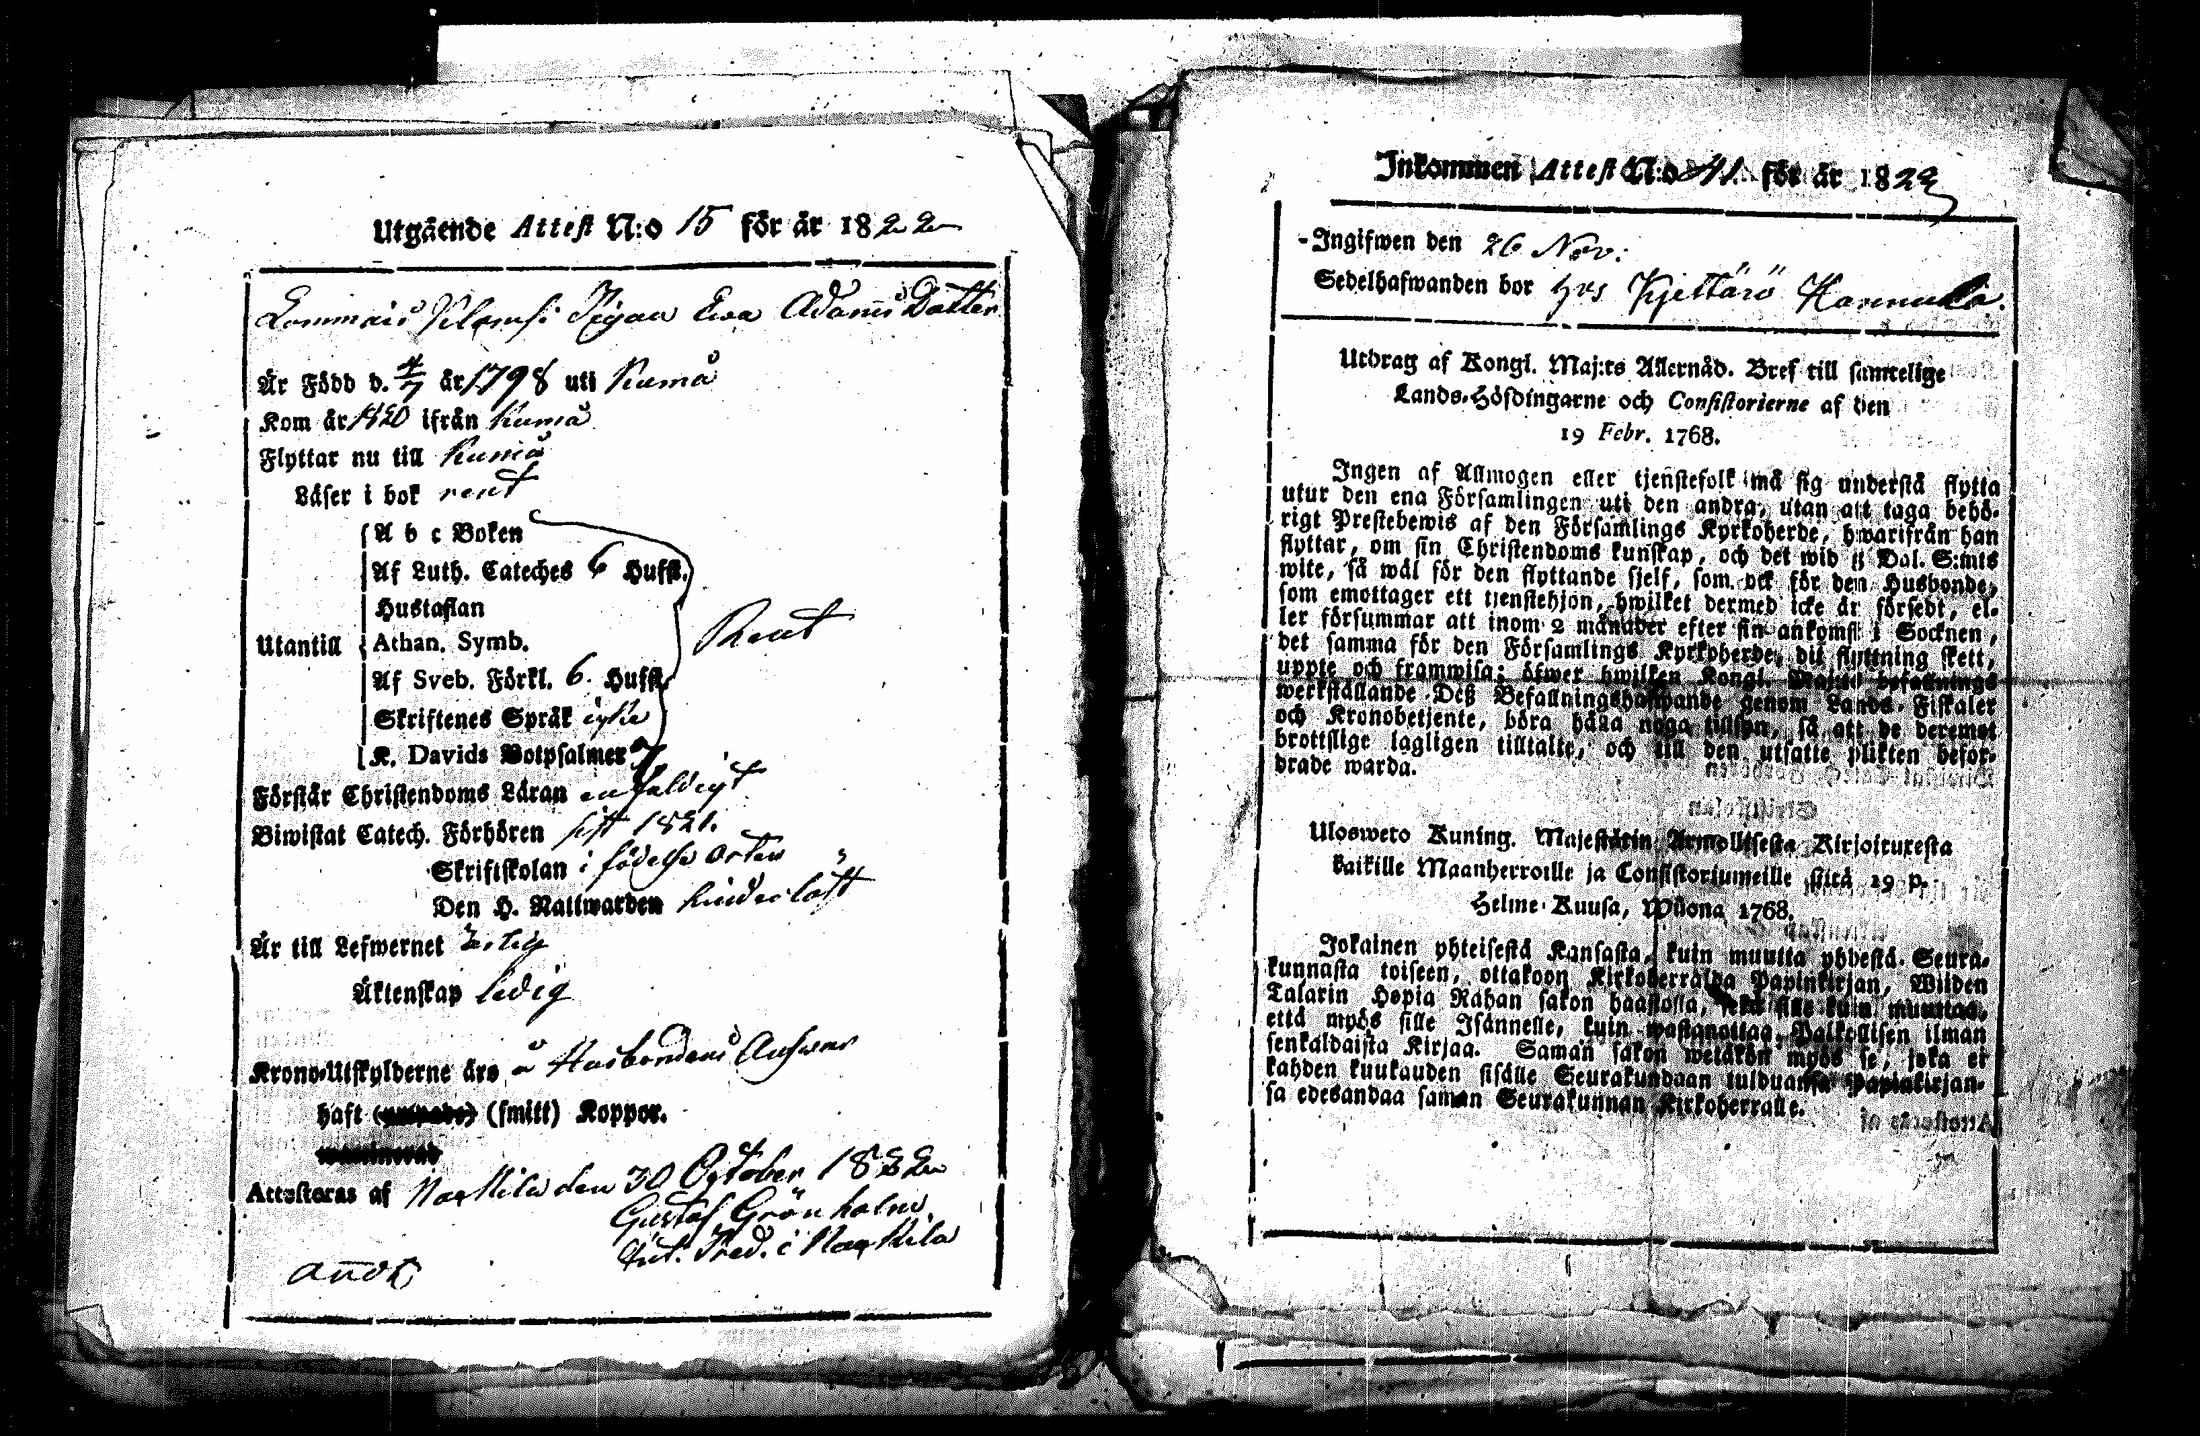 Utgående Attest N:o 15 för år 1822
Ewa Adams Dotter
Är Född d. 4/7 år 1798 uti Kumå
Kom år 1820 ifrån Kumå
Flyttar nu till Kumå
Läser i bok rent
A b c Boken
Af Luth. Cateches 6 Hufst.
Hustaflan
Utantill Athan. Symb. Rent
Af Sveb. Förkl. 6. Hufst.
Skriftenes Språk icke
K. Davids Botpsalmer
Förstår Christendoms Läran enfaldigt
Biwistat Catech. Förhören sist 1821.
Skriftskolan i födelse orten
Den H. Nattwarden hinderlöst
Är till Lefwernet ärlig
Äktenskap ledig
Krono-Utskylderne äro å Husbondens Answar
haft (smitt) Koppor.
Attesteras af Nackila den 30 October 1822
Gustaf Grönholm.
Pred. i Nackila
Inkommen Attest N:o 41. för år 1822
Ingifwen den 26 Nov:
Sedelhafwanden bor hos Kjettärö Hannula.
Utdrag af Kongl. Maj:ts Allernåd. Bref till samtelige
Lands-Höfdingarne och Consistorierne af den
19 Febr. 1768.
Ingen af Allmogen eller tjenstefolk må sig understå flytta
utur den ena Församlingen uti den andra, utan att taga behö-
rigt Prestebewis af den Församlings Kyrkoherde, hwarifrån han
flyttar, om sin Christendoms kunskap, och det wid 5 Dal. S:mts
wite, så wäl för den flyttande sjelf, som ock för den Husbonde,
som emottager ett tjenstehjon, hwilket dermed icke är försedt, el-
ler försummar att inom 2 månader efter sin ankomst i Socknen,
det samma för den Församlings Kyrkoherde, dit flyttning skett,
uppte och framwisa; öfwer hwilken Kongl. Maj:ts befallnings
werkställande Deß Befallningshafwande genom Lands-Fiskaler
och Kronobetjente, böra hålla noga tillsyn, så att de deremot
brottslige lagligen tilltalte, och till den utsatte plikten befor-
drade warda.
Ulosweto Kuning. Majestätin Armollisesta Kirjoituxesta
kaikille Maanherroille ja Consistoriumeille siitä 19 p.
Helme-Kuusa, Wuona 1768.
Jokainen yhteisestä Kansasta, kuin muutta yhdestä Seura-
kunnasta toiseen, ottakoon Kirkoherralda Papinkirjan, Wiiden
Talarin Hopia Rahan sakon haastolla, sekä sille kuin muuttaa,
että myös sille Isännelle, kuin wastanottaa Palkollisen ilman
senkaldaista Kirjaa. Saman sakon wetäkön myös se, joka ei
kahden kuukauden sisälle Seurakundaan tulduansa Papinkirjan-
sa edesandaa saman Seurakunnan Kirkoherralle.